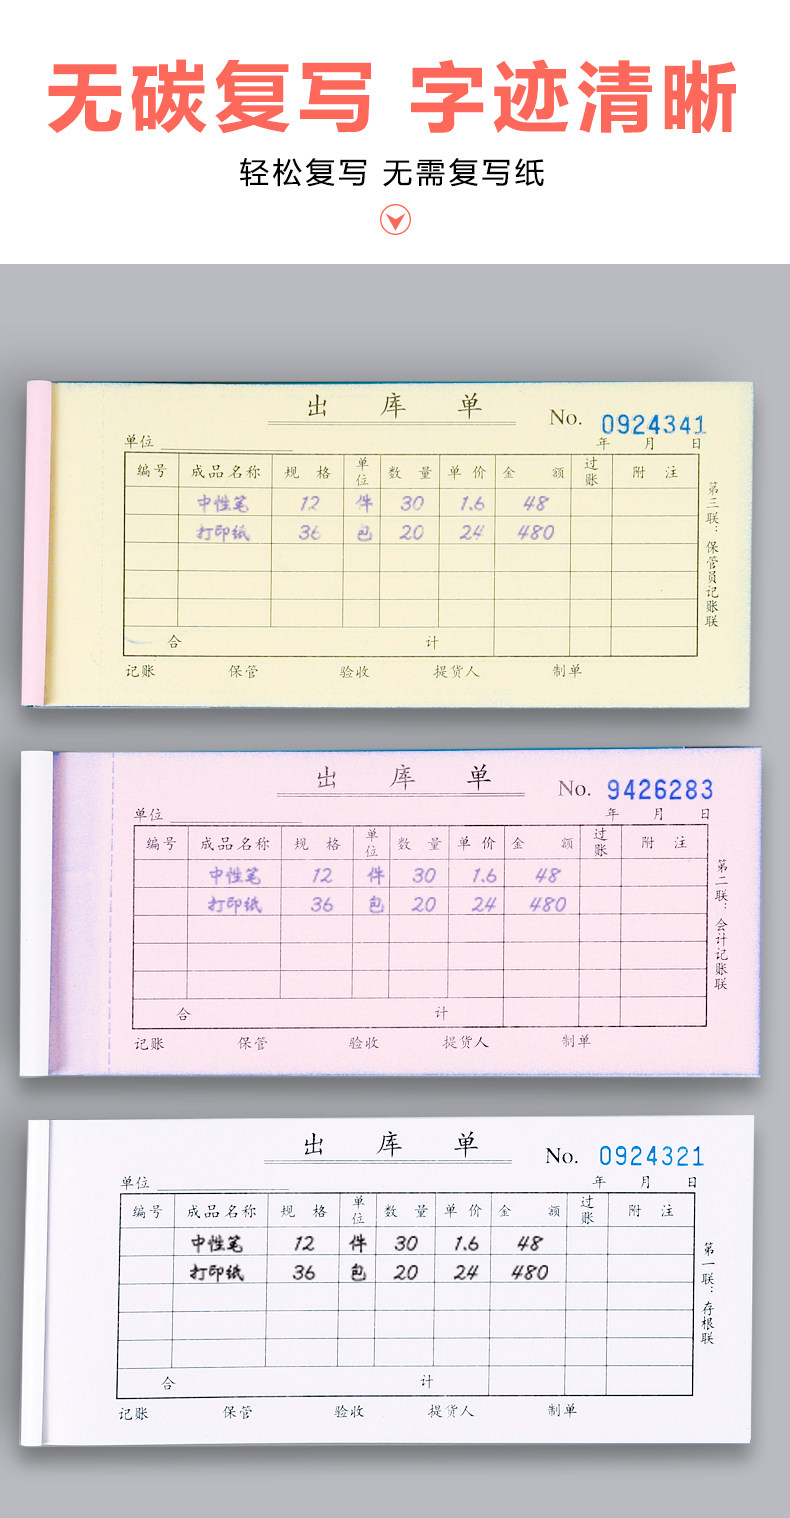 无碳复写 字迹清晰
轻松复写 无需复写纸
出 库 单
No. 0924341
单位 年 月 日
编号 成品名称 规 格 单位 数 量 单 价 金 额 过账 附 注
中性笔 12 件 30 1.6 48
打印纸 36 包 20 24 480
合 计
记账 保管 验收 提货人 制单
第三联：保管员记账联
出 库 单
No. 9426283
单位 年 月 日
编号 成品名称 规 格 单位 数 量 单 价 金 额 过账 附 注
中性笔 12 件 30 1.6 48
打印纸 36 包 20 24 480
合 计
记账 保管 验收 提货人 制单
第二联：会计记账联
出 库 单
No. 0924321
单位 年 月 日
编号 成品名称 规 格 单位 数 量 单 价 金 额 过账 附 注
中性笔 12 件 30 1.6 48
打印纸 36 包 20 24 480
合 计
记账 保管 验收 提货人 制单
第一联：存根联